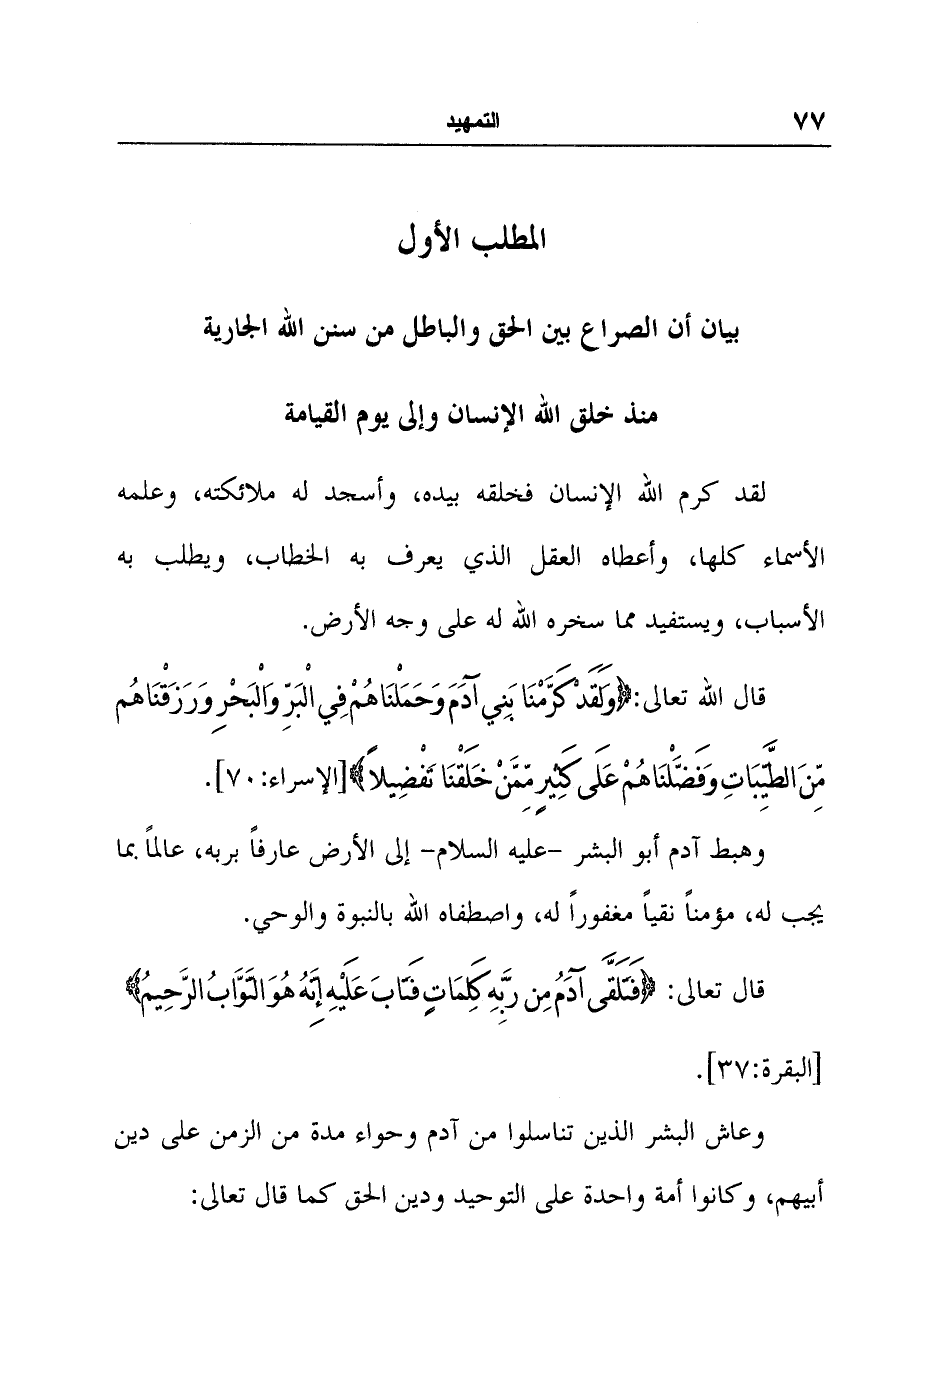 ٧٧ التمهيد
المطلب الأول
بيان أن الصراع بين الحق والباطل من سنن الله الجارية
منذ خلق الله الإنسان وإلى يوم القيامة
لقد كرم الله الإنسان فخلقه بيده، وأسجد له ملائكته، وعلمه
الأسماء كلها، وأعطاه العقل الذي يعرف به الخطاب، ويطلب به
الأسباب، ويستفيد مما سخره الله له على وجه الأرض.
قال الله تعالى: ﴿وَلَقَدْ كَرَّمْنَا بَنِي آدَمَ وَحَمَلْنَاهُمْ فِي الْبَرِّ وَالْبَحْرِ وَرَزَقْنَاهُم
مِّنَ الطَّيِّبَاتِ وَفَضَّلْنَاهُمْ عَلَى كَثِيرٍ مِّمَّنْ خَلَقْنَا تَفْضِيلاً﴾ [الإسراء: ٧٠].
وهبط آدم أبو البشر -عليه السلام- إلى الأرض عارفاً بربه، عالماً بما
يجب له، مؤمناً نقياً مغفوراً له، واصطفاه الله بالنبوة والوحي.
قال تعالى: ﴿فَتَلَقَّى آدَمُ مِن رَّبِّهِ كَلِمَاتٍ فَتَابَ عَلَيْهِ إِنَّهُ هُوَ التَّوَّابُ الرَّحِيمُ﴾
[البقرة:٣٧].
وعاش البشر الذين تناسلوا من آدم وحواء مدة من الزمن على دين
أبيهم، وكانوا أمة واحدة على التوحيد ودين الحق كما قال تعالى: